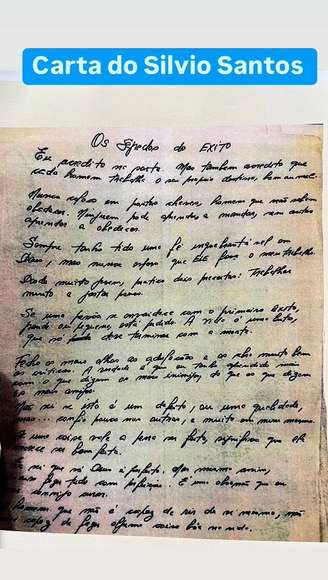 Carta do Silvio Santos
Os Segredos do EXITO
Eu acredito na sorte. Mas também acredito que
cada homem trabalha o seu próprio destino, bem ou mal.
Nunca coloco em postos chaves, homens que não sabem
obedecer. Ninguém pode aprender a mandar, sem antes
aprender a obedecer.
Sempre tenho tido uma fé inquebrantável em
Deus, mas nunca espero que Ele faça o meu trabalho.
Desde muito jovem, pratico dois preceitos: Trabalhar
muito e gastar pouco.
Se uma pessoa se envaidece com o primeiro êxito,
grande ou pequeno, está perdido. A vida é uma luta,
que só deve terminar com a morte.
Fecho os meus olhos as adulações e os abro muito bem
as críticas. A verdade é que eu tenho aprendido mais
com o que dizem os meus inimigos, do que os que dizem
os meus amigos.
Não sei se isto é um defeito, ou uma qualidade,
mas... confio pouco nos outros, e muito em mim mesmo.
Se uma coisa vale a pena ser feita, significa que ela
merece ser bem feita.
sei que só Deus é perfeito. Mas mesmo assim,
faço tudo com perfeição. É uma obsessão que eu
homem que não é capaz de rir de si mesmo, não
é capaz de fazer alguma coisa boa na vida.